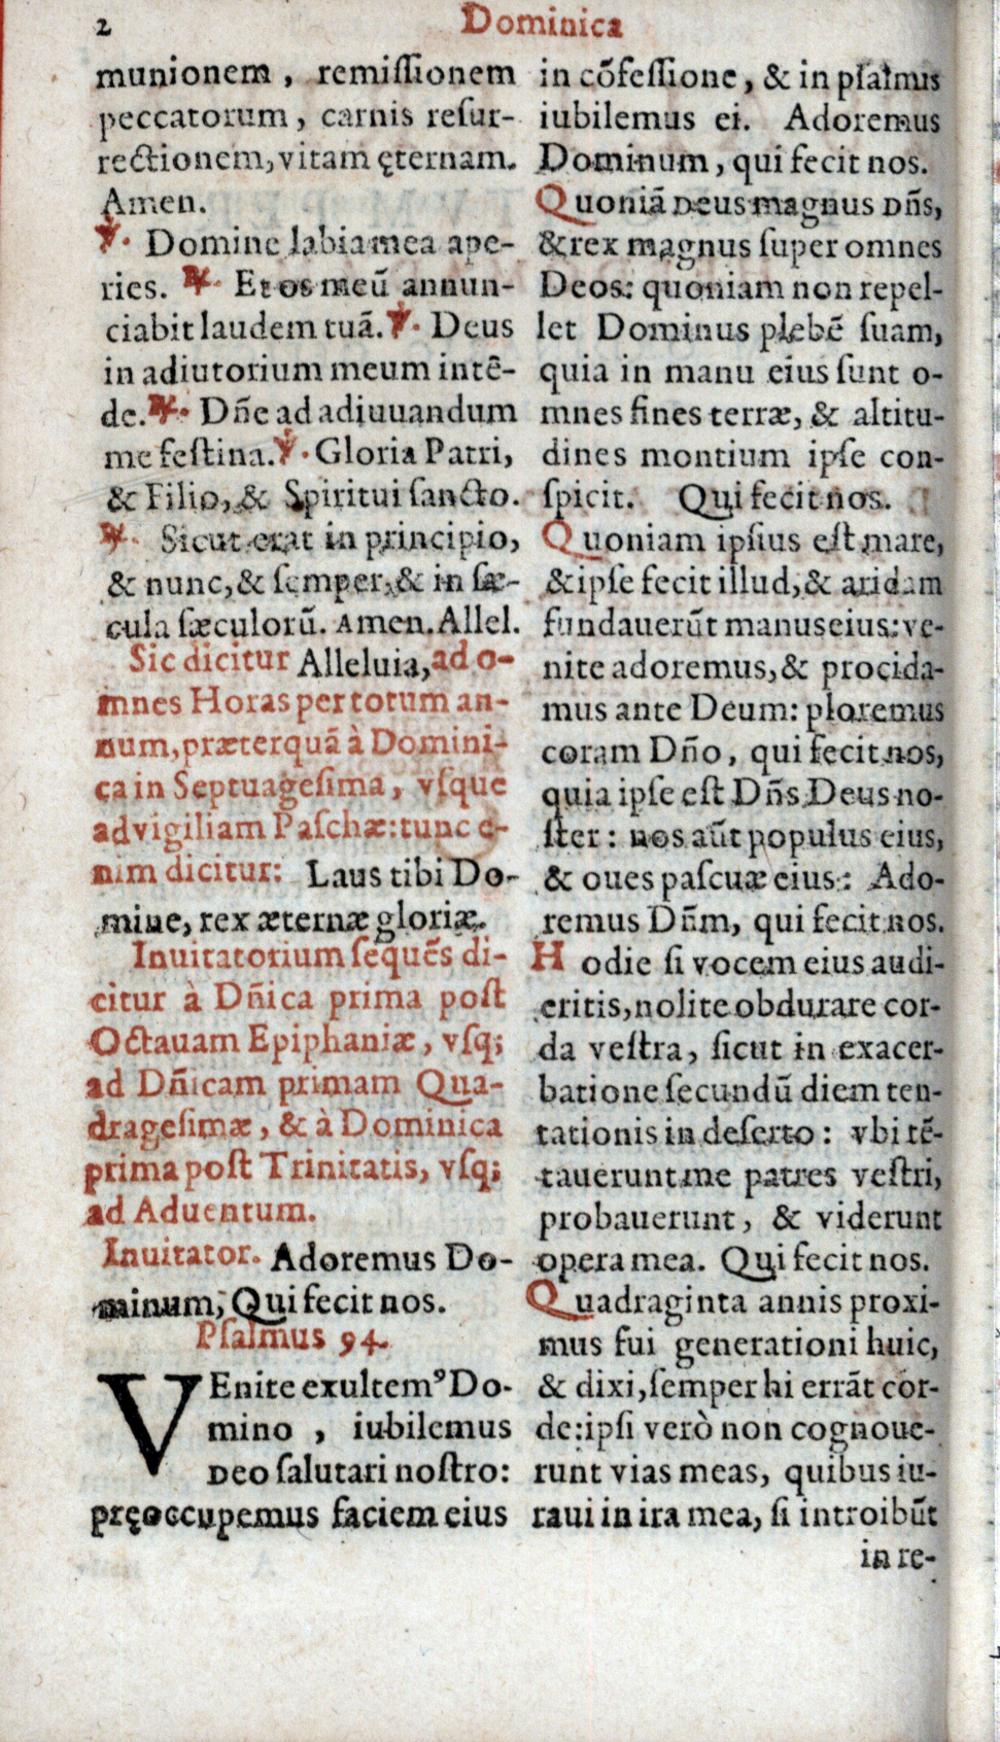 2
Dominica
munionem, remiſſionem
peccatorum, carnis reſur-
rectionem, vitam ęternam.
Amen.
℣. Domine labia mea ape-
ries. ℟. Et os meũ annun-
ciabit laudem tuã. ℣. Deus
in adiutorium meum intẽ-
de. ℟. Dñe ad adiuuandum
me feſtina. ℣. Gloria Patri,
& Filio, & Spiritui ſancto.
℟. Sicut erat in principio,
& nunc, & ſemper, & in ſæ-
cula ſæculorũ. Amen. Allel.
Sic dicitur Alleluia, ad o-
mnes Horas per totum an-
num, præterquã à Domini-
ca in Septuageſima, vſque
ad vigiliam Paſchæ: tunc e-
nim dicitur: Laus tibi Do-
mine, rex æternæ gloriæ.
Inuitatorium ſequẽs di-
citur à Dñica prima poſt
Octauam Epiphaniæ, vſq;
ad Dñicam primam Qua-
drageſimæ, & à Dominica
prima poſt Trinitatis, vſq;
ad Aduentum.
Inuitator. Adoremus Do-
minum, Qui fecit nos.
Pſalmus 94.
VEnite exultemꝰ Do-
mino, iubilemus
Deo ſalutari noſtro:
pręoccupemus faciem eius
in cõfeſſione, & in pſalmis
iubilemus ei. Adoremus
Dominum, qui fecit nos.
Quoniã Deus magnus Dñs,
& rex magnus ſuper omnes
Deos: quoniam non repel-
let Dominus plebẽ ſuam,
quia in manu eius ſunt o-
mnes fines terræ, & altitu-
dines montium ipſe con-
ſpicit. Qui fecit nos.
Quoniam ipſius eſt mare,
& ipſe fecit illud, & aridam
fundauerũt manus eius: ve-
nite adoremus, & procida-
mus ante Deum: ploremus
coram Dño, qui fecit nos,
quia ipſe eſt Dñs Deus no-
ſter: nos aũt populus eius,
& oues paſcuæ eius: Ado-
remus Dñm, qui fecit nos.
Hodie ſi vocem eius audi-
eritis, nolite obdurare cor-
da veſtra, ſicut in exacer-
batione ſecundũ diem ten-
tationis in deſerto: vbi tẽ-
tauerunt me patres veſtri,
probauerunt, & viderunt
opera mea. Qui fecit nos.
Quadraginta annis proxi-
mus fui generationi huic,
& dixi, ſemper hi errãt cor-
de: ipſi verò non cognoue-
runt vias meas, quibus iu-
raui in ira mea, ſi introibũt
in re-